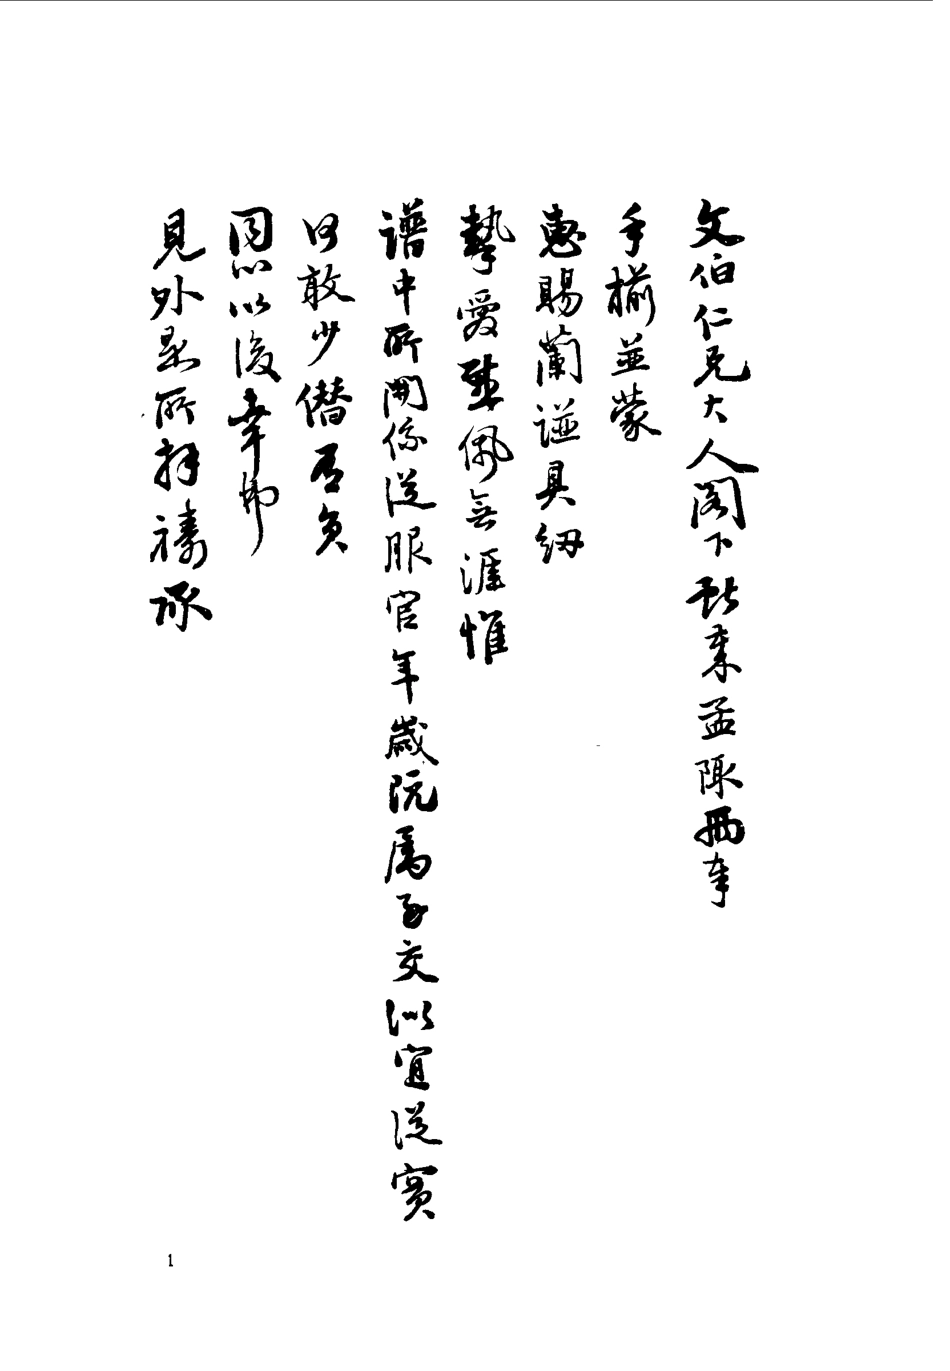 文伯仁兄大人閣下獻来孟陬兩奉
手椾並蒙
惠賜蘭譜具紉
摯愛感佩無涯惟
譜中所開係從服官年歲既屬至交似宜從實
何敢少僭為兄
因以後幸
見外是所拜禱承
1